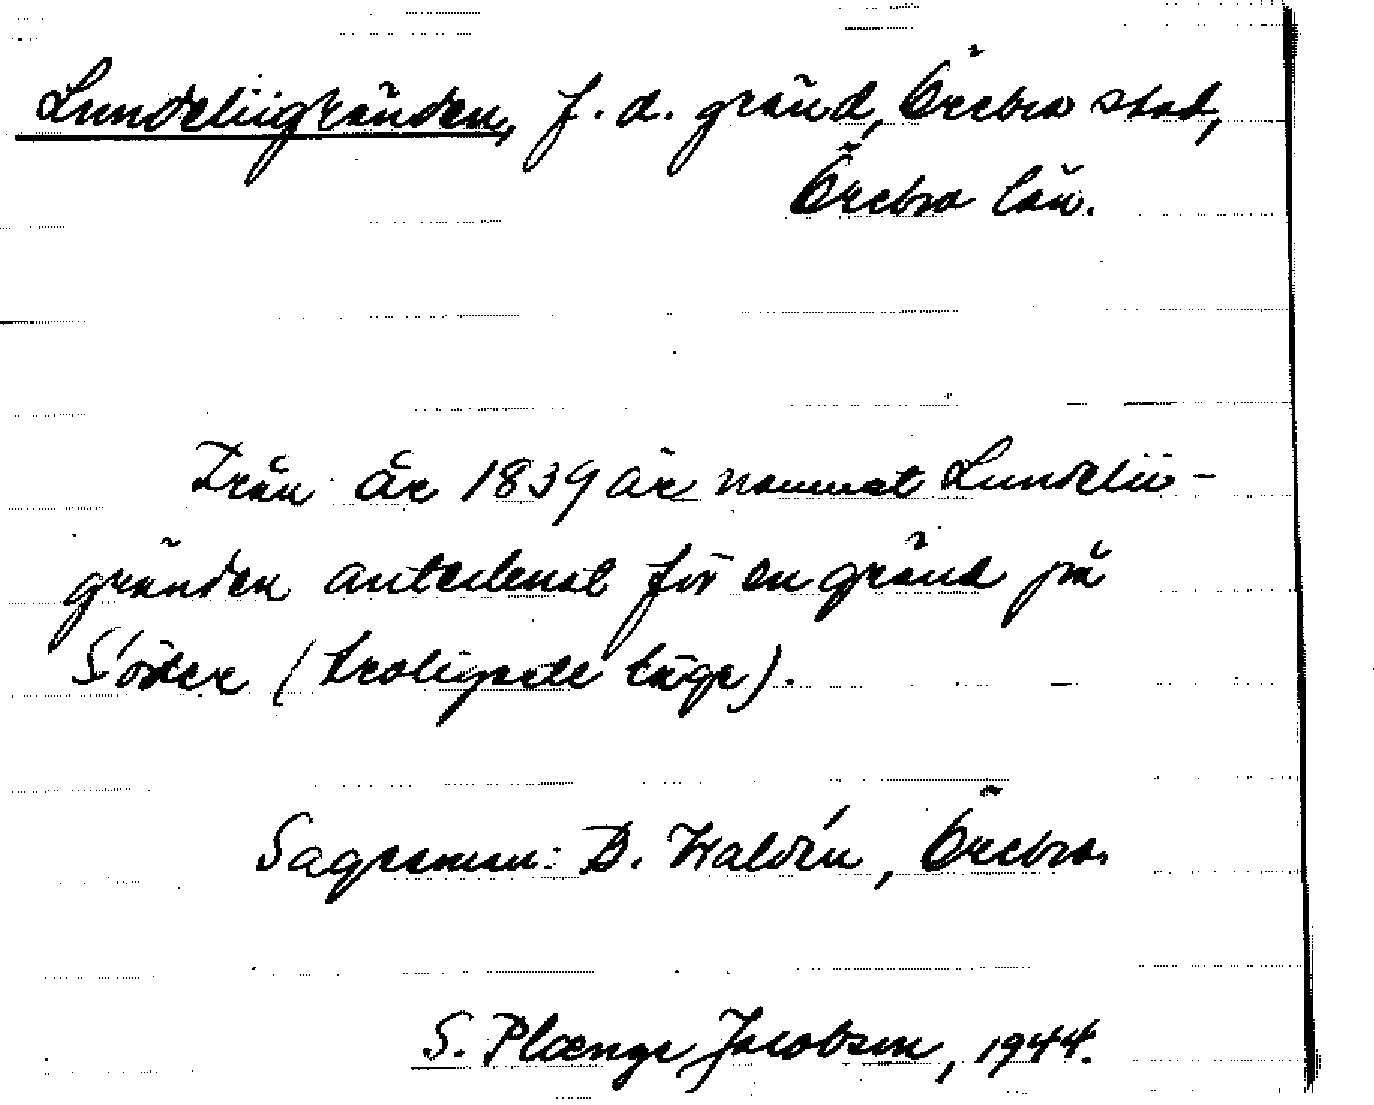 Lundeliigränden, f.d. gränd, Örebro stad,
Örebro län.
Från år 1839 är namnet Lundelii-
gränden antecknat för en gränd på
Söder (troligaste läge).
Sagesman: B. Waldén, Örebro.
S. Plænge Jacobson, 1944.